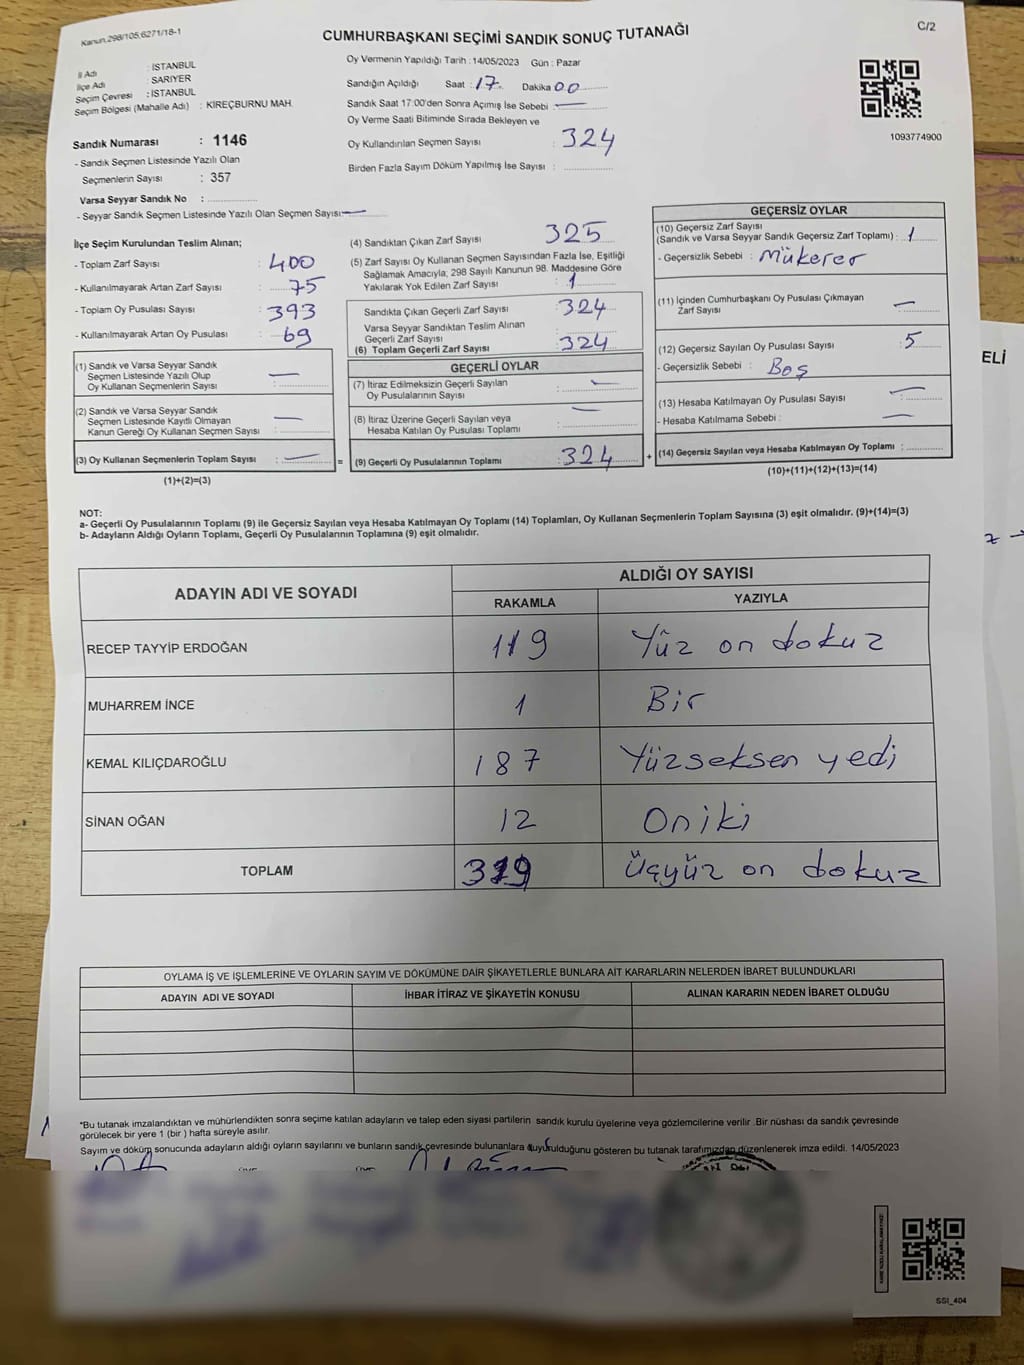 Kanun.298/105;6271/18-1
C/2
CUMHURBAŞKANI SEÇİMİ SANDIK SONUÇ TUTANAĞI
İl Adı : İSTANBUL
İlçe Adı : SARIYER
Seçim Çevresi : İSTANBUL
Seçim Bölgesi (Mahalle Adı) : KİREÇBURNU MAH.
Sandık Numarası : 1146
- Sandık Seçmen Listesinde Yazılı Olan
Seçmenlerin Sayısı : 357
Varsa Seyyar Sandık No :
- Seyyar Sandık Seçmen Listesinde Yazılı Olan Seçmen Sayısı: —
Oy Vermenin Yapıldığı Tarih : 14/05/2023 Gün : Pazar
Sandığın Açıldığı Saat : 17 Dakika 00
Sandık Saat 17:00'den Sonra Açımış İse Sebebi : —
Oy Verme Saati Bitiminde Sırada Bekleyen ve
Oy Kullandırılan Seçmen Sayısı : 324
Birden Fazla Sayım Döküm Yapılmış İse Sayısı :
1093774900
İlçe Seçim Kurulundan Teslim Alınan;
- Toplam Zarf Sayısı : 400
- Kullanılmayarak Artan Zarf Sayısı : 75
- Toplam Oy Pusulası Sayısı : 393
- Kullanılmayarak Artan Oy Pusulası : 69
(1) Sandık ve Varsa Seyyar Sandık
Seçmen Listesinde Yazılı Olup
Oy Kullanan Seçmenlerin Sayısı : —
(2) Sandık ve Varsa Seyyar Sandık
Seçmen Listesinde Kayıtlı Olmayan
Kanun Gereği Oy Kullanan Seçmen Sayısı : —
(3) Oy Kullanan Seçmenlerin Toplam Sayısı : —
(1)+(2)=(3)
(4) Sandıktan Çıkan Zarf Sayısı 325
(5) Zarf Sayısı Oy Kullanan Seçmen Sayısından Fazla İse, Eşitliği
Sağlamak Amacıyla, 298 Sayılı Kanunun 98. Maddesine Göre
Yakılarak Yok Edilen Zarf Sayısı : 1
Sandıkta Çıkan Geçerli Zarf Sayısı : 324
Varsa Seyyar Sandıktan Teslim Alınan
Geçerli Zarf Sayısı
(6) Toplam Geçerli Zarf Sayısı : 324
GEÇERLİ OYLAR
(7) İtiraz Edilmeksizin Geçerli Sayılan
Oy Pusulalarının Sayısı : —
(8) İtiraz Üzerine Geçerli Sayılan veya
Hesaba Katılan Oy Pusulası Toplamı : —
= (9) Geçerli Oy Pusulalarının Toplamı : 324
GEÇERSİZ OYLAR
(10) Geçersiz Zarf Sayısı
(Sandık ve Varsa Seyyar Sandık Geçersiz Zarf Toplamı) : 1
- Geçersizlik Sebebi : Mükerer
(11) İçinden Cumhurbaşkanı Oy Pusulası Çıkmayan
Zarf Sayısı : —
(12) Geçersiz Sayılan Oy Pusulası Sayısı : 5
- Geçersizlik Sebebi : Boş
(13) Hesaba Katılmayan Oy Pusulası Sayısı : —
- Hesaba Katılmama Sebebi : —
+ (14) Geçersiz Sayılan veya Hesaba Katılmayan Oy Toplamı :
(10)+(11)+(12)+(13)=(14)
ELİ
NOT:
a- Geçerli Oy Pusulalarının Toplamı (9) ile Geçersiz Sayılan veya Hesaba Katılmayan Oy Toplamı (14) Toplamları, Oy Kullanan Seçmenlerin Toplam Sayısına (3) eşit olmalıdır. (9)+(14)=(3)
b- Adayların Aldığı Oyların Toplamı, Geçerli Oy Pusulalarının Toplamına (9) eşit olmalıdır.
ADAYIN ADI VE SOYADI ALDIĞI OY SAYISI
RAKAMLA YAZIYLA
RECEP TAYYİP ERDOĞAN 119 Yüz on dokuz
MUHARREM İNCE 1 Bir
KEMAL KILIÇDAROĞLU 187 Yüzseksen yedi
SİNAN OĞAN 12 Oniki
TOPLAM 319 Üçyüz on dokuz
OYLAMA İŞ VE İŞLEMLERİNE VE OYLARIN SAYIM VE DÖKÜMÜNE DAİR ŞİKAYETLERLE BUNLARA AİT KARARLARIN NELERDEN İBARET BULUNDUKLARI
ADAYIN ADI VE SOYADI İHBAR İTİRAZ VE ŞİKAYETİN KONUSU ALINAN KARARIN NEDEN İBARET OLDUĞU
*Bu tutanak imzalandıktan ve mühürlendikten sonra seçime katılan adayların ve talep eden siyasi partilerin sandık kurulu üyelerine veya gözlemcilerine verilir .Bir nüshası da sandık çevresinde
görülecek bir yere 1 (bir ) hafta süreyle asılır.
Sayım ve döküm sonucunda adayların aldığı oyların sayılarını ve bunların sandık çevresinde bulunanlara duyurulduğunu gösteren bu tutanak tarafımızdan düzenlenerek imza edildi. 14/05/2023
SSI_404